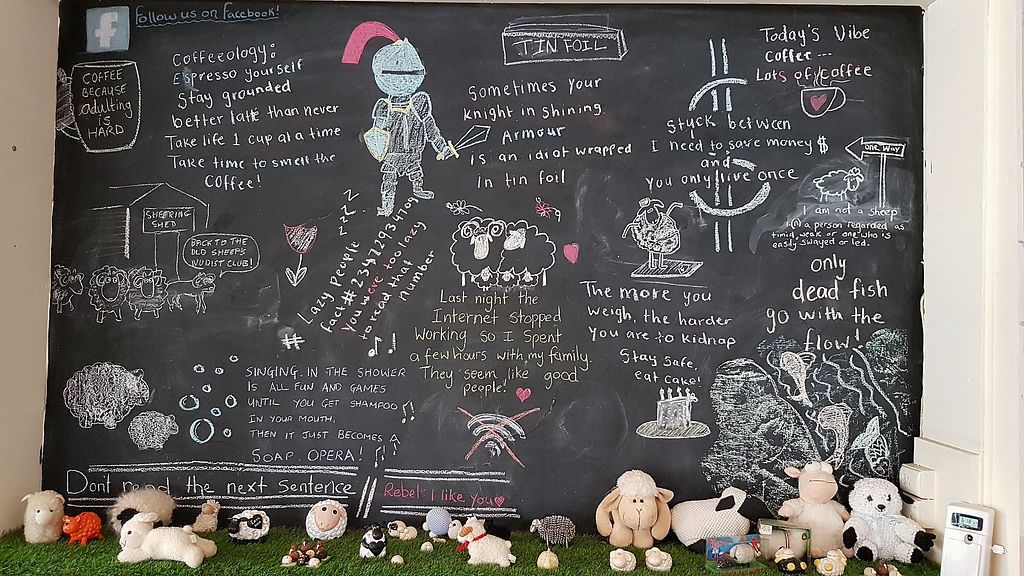 f
follow us on Facebook!
COFFEE
BECAUSE
adulting
IS
HARD
Coffeeology:
Espresso yourself
Stay grounded
better latte than never
Take life 1 cup at a time
Take time to smell the
Coffee!
TIN FOIL
Sometimes your
knight in shining
Armour
is an idiot wrapped
in tin foil
Today's Vibe
Coffee ---
Lots of coffee
Stuck between
I need to save money $
and
you only live once
ONE WAY
I am not a sheep
(n) a person regarded as
timid, weak or one who is
easily swayed or led.
SHEERING
SHED
BACK TO THE
OLD SHEEPS
NUDIST CLUB!
zzzz
Lazy people
fact #
You were too lazy
to read that
number
#
Last night the
Internet stopped
working so I spent
a few hours with my family.
They seem like good
people!
The more you
weigh, the harder
you are to kidnap
Stay safe,
eat cake!
Only
dead fish
go with the
flow!
SINGING IN THE SHOWER
IS ALL FUN AND GAMES
UNTIL YOU GET SHAMPOO
IN YOUR MOUTH,
THEN IT JUST BECOMES A
SOAP OPERA!
Dont read the next Sentence
Rebel! I like you